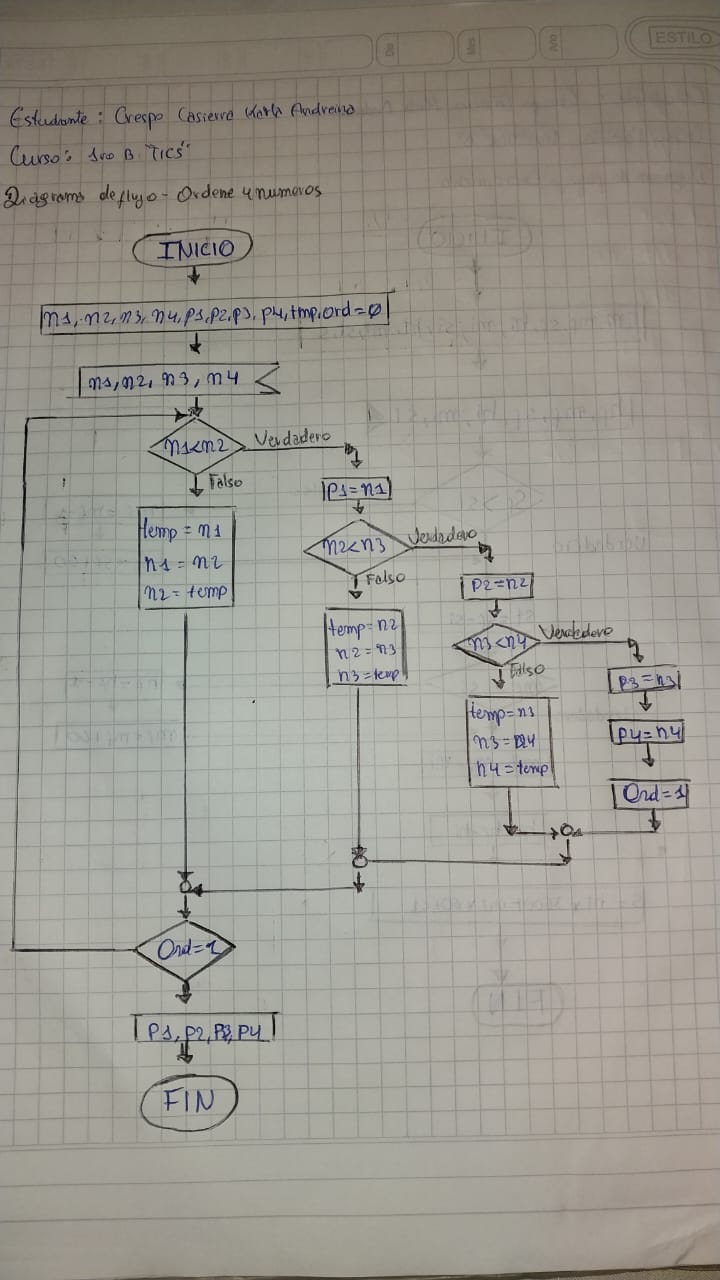 ESTILO
Dia
Mes
Ano
Estudiante : Crespo Casierra Karla Andreina
Curso: 1ro B "TICS"
Diagrama de flujo - Ordene 4 numeros
INICIO
n1, n2, n3, n4, p1, p2, p3, p4, tmp, ord = 0
n1, n2, n3, n4
n1<n2
Verdadero
Falso
p1=n1
temp = n1
n1 = n2
n2 = temp
n2<n3
Verdadero
Falso
p2=n2
temp=n2
n2=n3
n3=temp
n3<n4
Verdadero
Falso
p3=n3
temp=n3
n3=n4
n4=temp
p4=n4
Ord=1
Ord=1
P1, p2, P3, p4
FIN